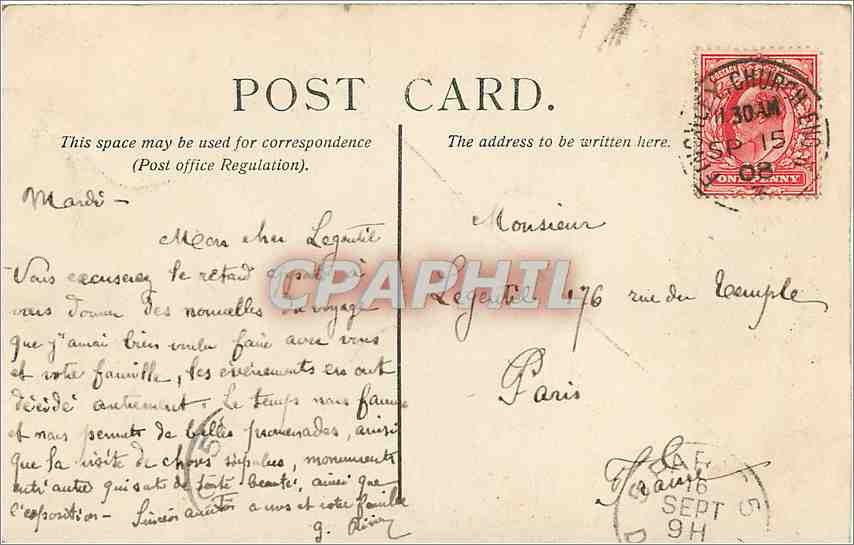 POST CARD.
This space may be used for correspondence
(Post office Regulation).
The address to be written here.
FINCHLEY CHURCH END
11.30 AM
SP 15
08
POSTAGE
ONE PENNY
Mardi –
Mon cher Legentil
Vous excuserez le retard à
vous donner des nouvelles du voyage
que j'aurai bien voulu faire avec vous
et votre famille, les événements en ont
décidé autrement. Le temps nous
et nous permet de belles promenades, ainsi
que la visite de choses , monuments
entr'autre qui sat de toute beauté, ainsi que
l'exposition – à vous et votre famille
g.
Monsieur
Legentil 176 rue du Temple
Paris
France
CPAPHIL
PAR
16
SEPT
9H
5
D